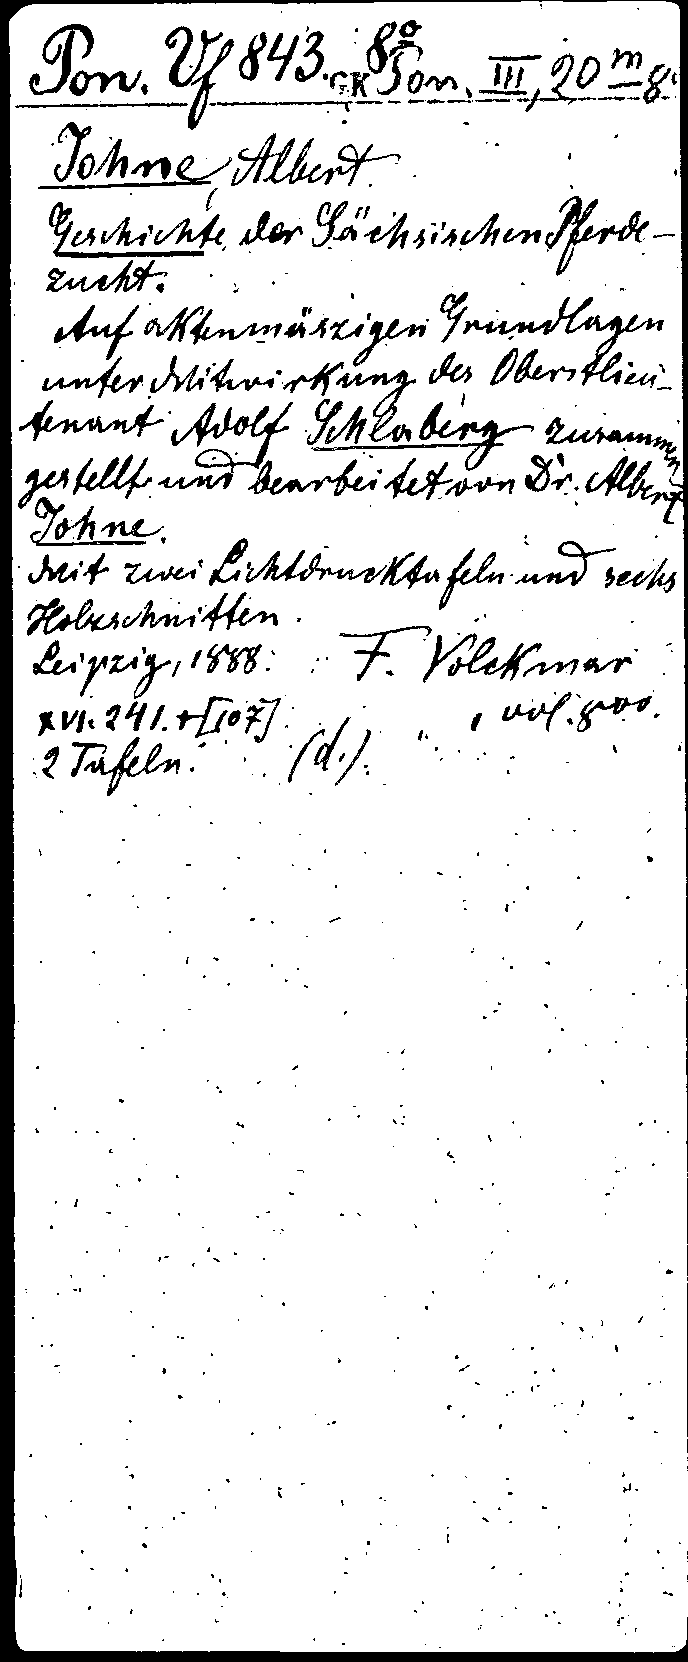 Pon. Vf 843. 8º
GK Pon. III, 20 m 8.
Johne, Albert.
Geschichte der Sächsischen Pferde-
zucht.
Auf aktenmäszigen Grundlagen
unter Mitwirkung des Oberstlieu-
tenant Adolf Schlaberg zusammen
gestellt und bearbeitet von Dr. Albert
Johne.
Mit zwei Lichtdrucktafeln und sechs
Holzschnitten.
Leipzig, 1888. F. Volckmar
XVI. 241. + [107]. , vol. 8vo.
2 Tafeln. (d.).